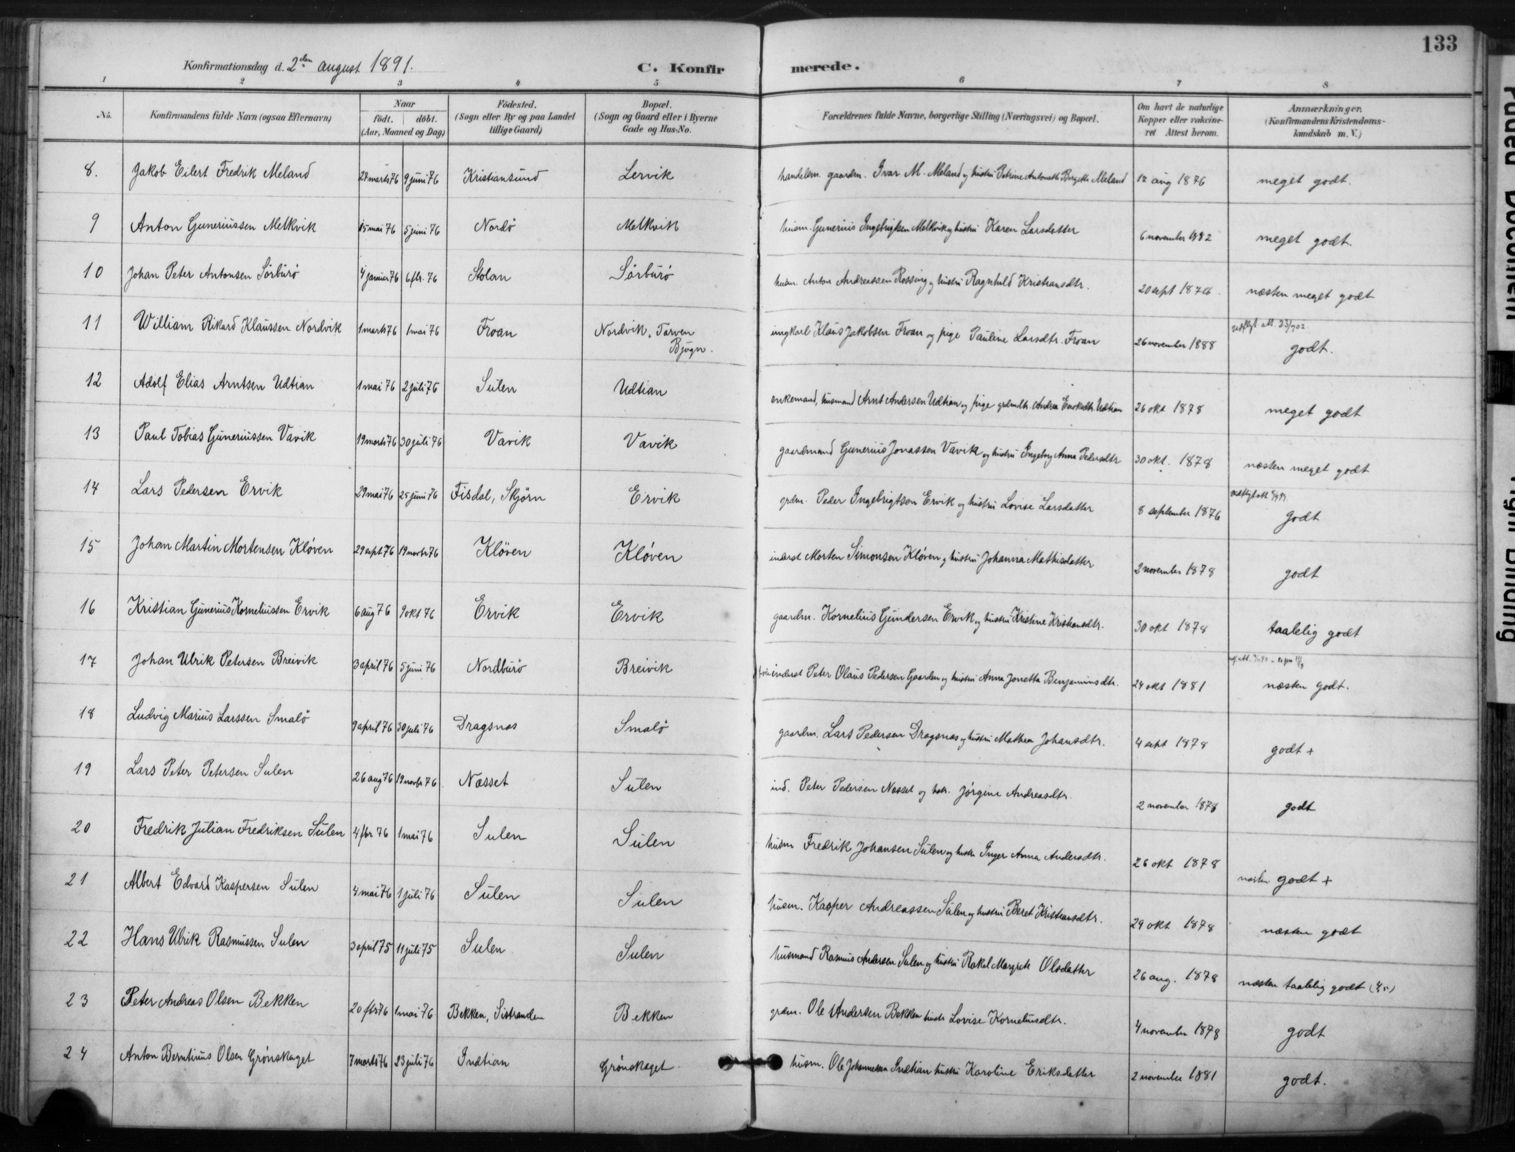 133
Konfirmationsdag d. 2den august 1891.
C. Konfirmerede.
1 2 3 4 5 6 7 8
No. Konfirmandens fulde Navn (ogsaa Efternavn) Naar født. døbt. (Aar, Maaned og Dag) Fødested. (Sogn eller By og paa Landet tillige Gaard) Bopæl. (Sogn og Gaard eller i Byerne Gade og Hus-No. Forældrenes fulde Navne, borgerlige Stilling (Næringsvei) og Bopæl. Om havt de naturlige Kopper eller vakcineret Attest herom. Anmærkninger. (Konfirmandens Kristendomskundskab m. V.)
8. Jakob Eilert Fredrik Meland 28 marts 76 9 juni 76 Kristiansund Lervik handelsm. gaardm. Ivar M. Meland og hustru Petrine Antonette Meland 12 aug 1876 meget godt.
9 Anton Guneriussen Melkvik 15 mai 76 5 juni 76 Nordø Melkvik husm. Gunerius Ingebrigtsen Melkvik og hustru Karen Larsdatter 6 november 1882 meget godt
10 Johan Peter Antonsen Sørburø 4 januar 76 6 fbr. 76 Stolan Sørburø husm. Anton Andreassen Røssing og hustru Ragnhild Kristiansdtr. 20 sept 1878 næsten meget godt
11 William Rikard Klaussen Nordvik 1 marts 76 1 mai 76 Froan Nordvik, Tarven Bjugn. ungkarl Klaus Jakobsen Froan og pige Pauline Larsdtr. Froan 26 november 1888 godt.
12 Adolf Elias Arntsen Udtian 1 mai 76 2 juli 76 Sulen Udtian enkemand, husmand Arnt Andersen Udtian og pige Andrea Udtian 26 okt 1878 meget godt
13 Paul Tobias Guneriussen Vavik 19 marts 76 30 juli 76 Vavik Vavik gaardmand Gunerius Jonassen Vavik og hustru Ingeborg Anna Pedersdtr 30 okt. 1878 næsten meget godt
14 Lars Pedersen Ervik 29 mai 76 25 juni 76 Fisdal, Skjørn Ervik grdm. Peder Ingebrigtsen Ervik og hustru Lovise Larsdatter 8 september 1876 godt
15 Johan Martin Mortensen Kløven 29 sept 76 19 novbr 76 Kløven Kløven inderst Morten Simonsen Kløven og hustru Johanna Mathisdatter 2 november 1878 godt
16 Kristian Gunerius Korneliussen Ervik 6 aug 76 9 okt 76 Ervik Ervik gaardm. Kornelius Gundersen Ervik og hustru Kristine Kristiansdtr. 30 okt 1878 taalelig godt
17 Johan Ulrik Petersen Breivik 3 april 76 5 juni 76 Nordburø Breivik inderst Peter Olaus Pedersen Gaarden og hustru Anna Jonetta Benjaminsdtr. 24 okt 1881 næsten godt.
18 Ludvig Marius Larssen Smalø 9 april 76 30 juli 76 Dragsnas Smalø gaardm. Lars Pedersen Dragsnas og hustru Mathea Johansdtr. 4 sept 1878 godt +
19 Lars Peter Petersen Sulen 26 aug 76 19 novbr 76 Næsset Sulen ind. Peter Pedersen Næsset og hstr. Jørgine Andreasdtr. 2 november 1878 godt
20 Fredrik Julian Fredriksen Sulen 4 fbr 76 1 mai 76 Sulen Sulen husm Fredrik Johansen Sulen og hustr Inger Anna Andersdtr. 26 okt 1878 næsten godt +
21 Albert Edvard Kaspersen Sulen 4 mai 76 1 juli 76 Sulen Sulen husm. Kasper Andreassen Sulen og hustru Beret Kristiansdtr. 29 okt 1878 næsten godt
22 Hans Ulrik Rasmussen Sulen 3 april 75 11 juli 75 Sulen Sulen husmand Rasmus Andersen Sulen og hustru Rakel Margrete Olsdatter 26 aug. 1878 næsten taalelig godt
23 Peter Andreas Olsen Bekken 20 fbr 76 1 mai 76 Bekken, Sistranden Bekken grdm. Ole Andersen Bekken hustr Lovise Korneliusdtr. 4 november 1878 godt
24 Anton Berntinus Olsen Grønskaget 7 marts 76 23 juli 76 Indtian Grønskaget husm. Ole Johannessen Indtian hustru Karoline Eriksdatter 2 november 1881 godt.